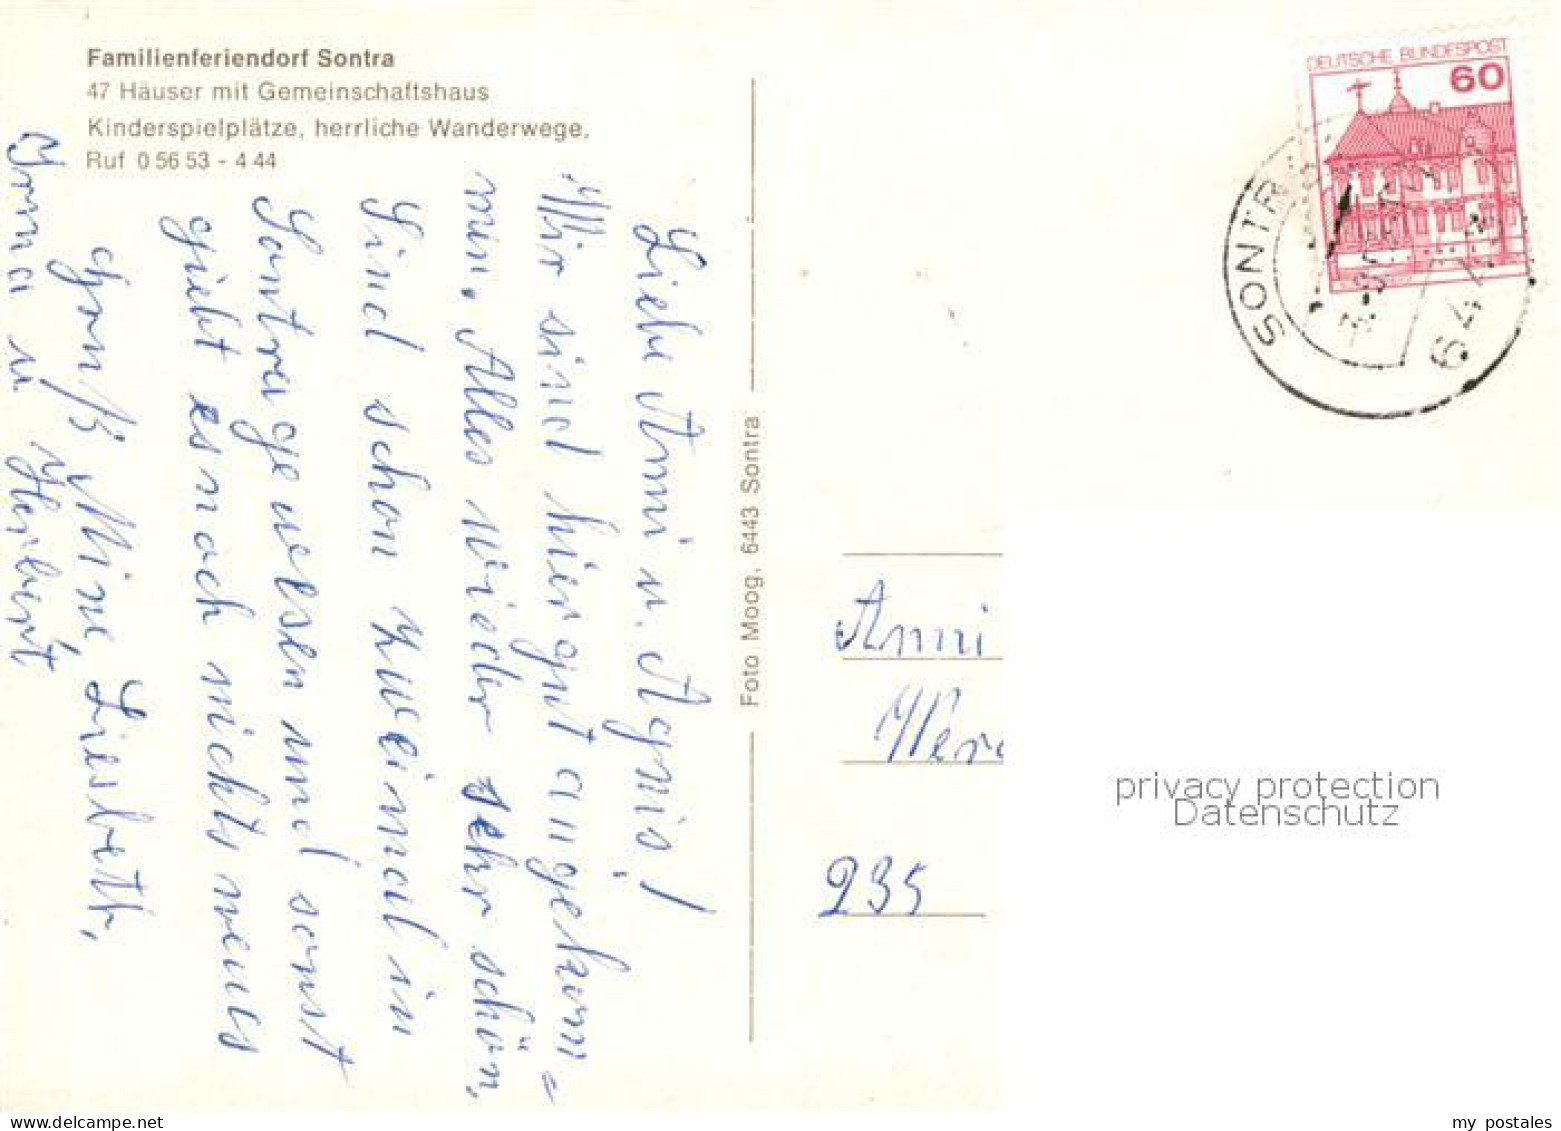 Familienferiendorf Sontra
47 Häuser mit Gemeinschaftshaus
Kinderspielplätze, herrliche Wanderwege,
Ruf 0 56 53 - 4 44
Liebe Anni u. Agnis!
Wir sind hier gut angekom=
min. Alles wieder sehr schön,
Sind schon zweimal in
Sontra gewesen und sonst
giebt es noch nichts neues
Gruß Mine, Liesbett,
Irma u Heribert
Foto Moog, 6443 Sontra
DEUTSCHE BUNDESPOST
60
SONTRA
Anni
235
privacy protection
Datenschutz
my postales